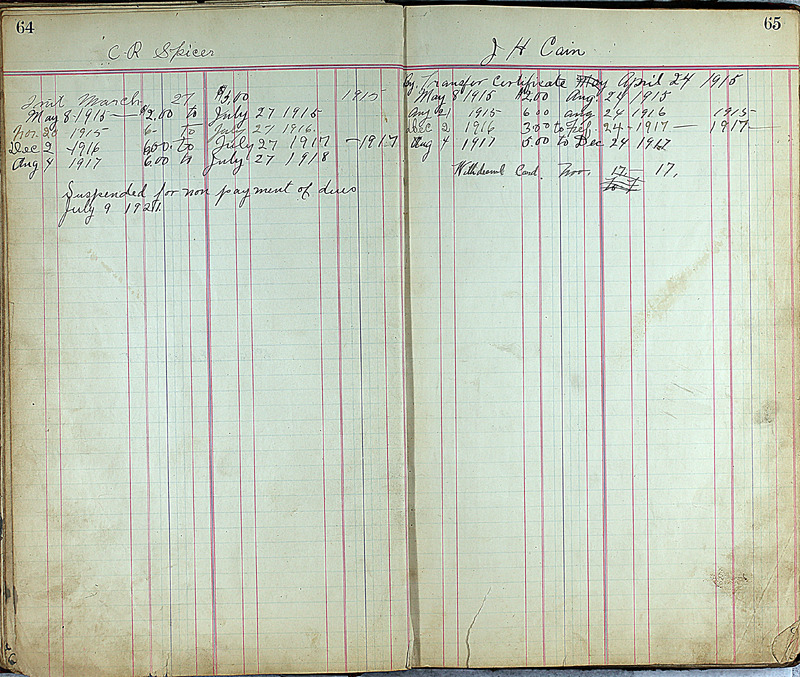 64
C R Spicer
Init March 27 $5.00 1915
May 8-1915 — $2.00 to July 27 1915
Nov. 20 1915 6- To July 27 1916.
Dec 2 -1916 6.00 to July 27 1917 -1917
Aug 4 1917 6.00 to July 27 1918
Suspended for non payment of dues
July 9 1921.
65
J H Cain
By Transfer Certificate May April 24 1915
May 8 1915 $2.00 Aug. 24 1915
Aug 21 1915- 6 00 Aug 24 1916 1915-
Dec 2 1916 3 00 to Feb 24-1917 — 1917—
Aug 4 1917 5.00 to Dec 24 1917
Withdrawal Card. Nov. 17 - 17.